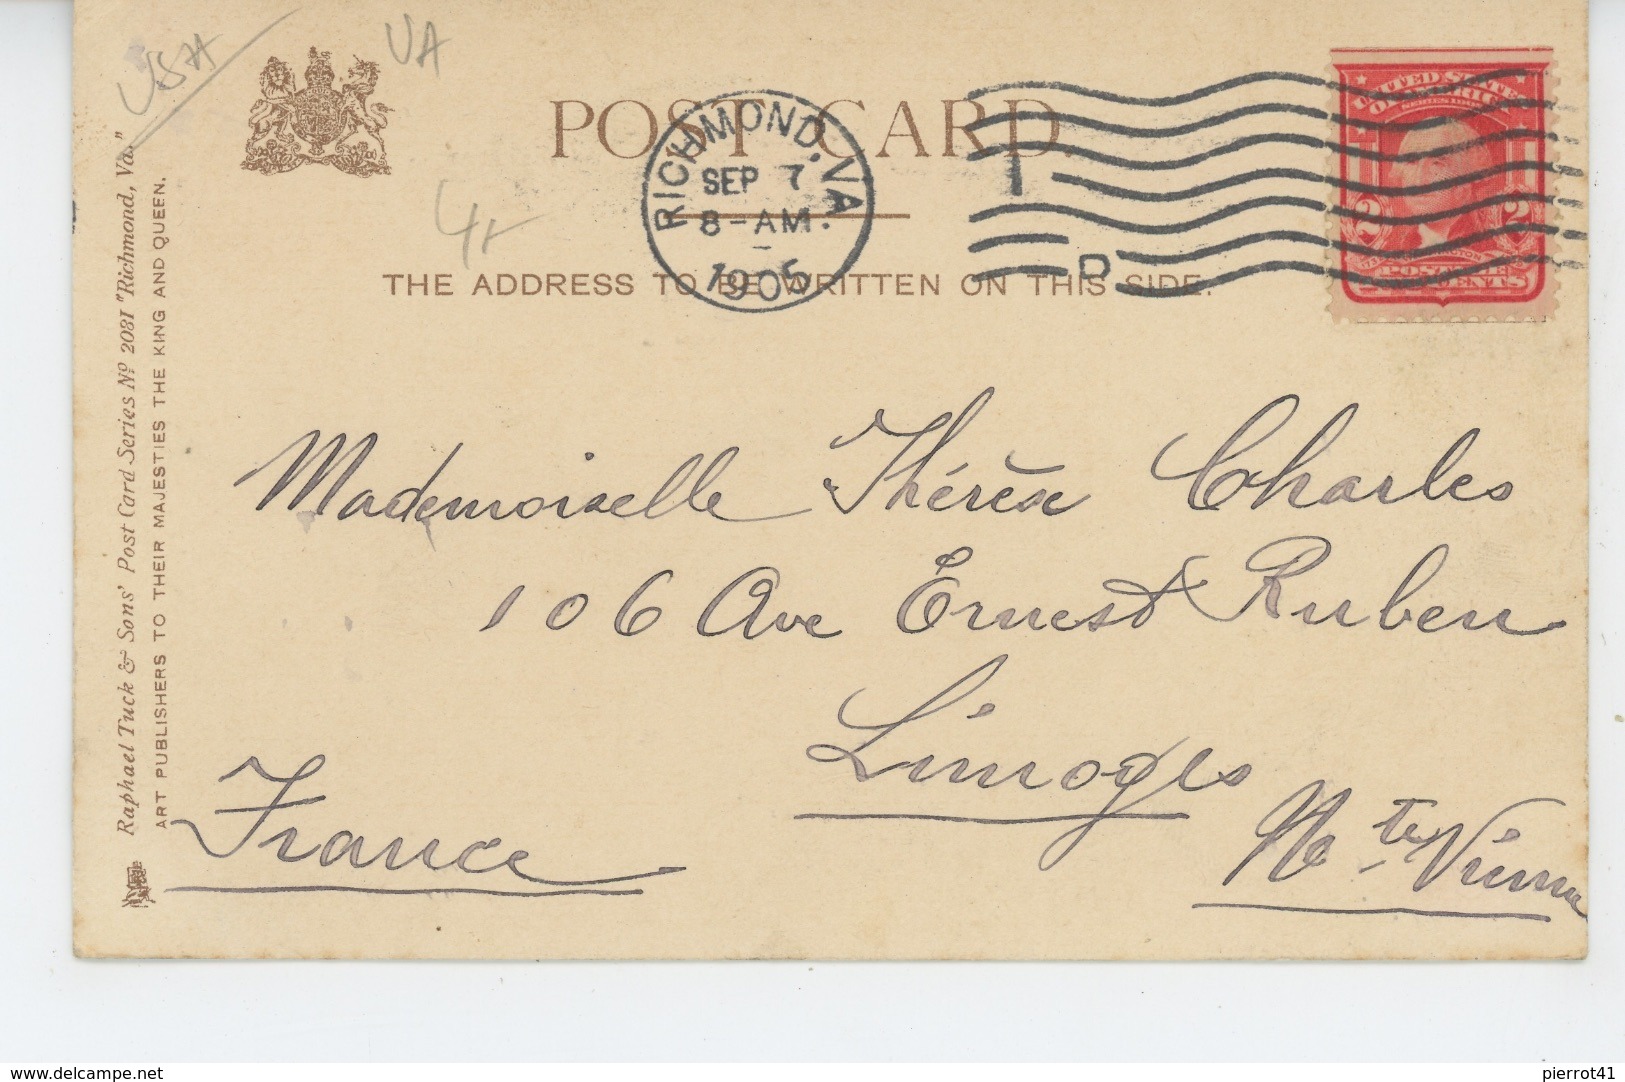 USA
VA
POST CARD.
RICHMOND, VA.
SEP 7
8-AM.
1905
D
UNITED STATES
OF AMERICA
SERIES 1902
2 2
POSTAGE
TWO CENTS
THE ADDRESS TO BE WRITTEN ON THIS SIDE.
Raphael Tuck & Sons' Post Card Series No 2081 "Richmond, Va."
ART PUBLISHERS TO THEIR MAJESTIES THE KING AND QUEEN.
Mademoiselle Thérèse Charles
106 Ave Ernest Ruben
Limoges
Hte Vienne
France
delcampe.net
pierrot41